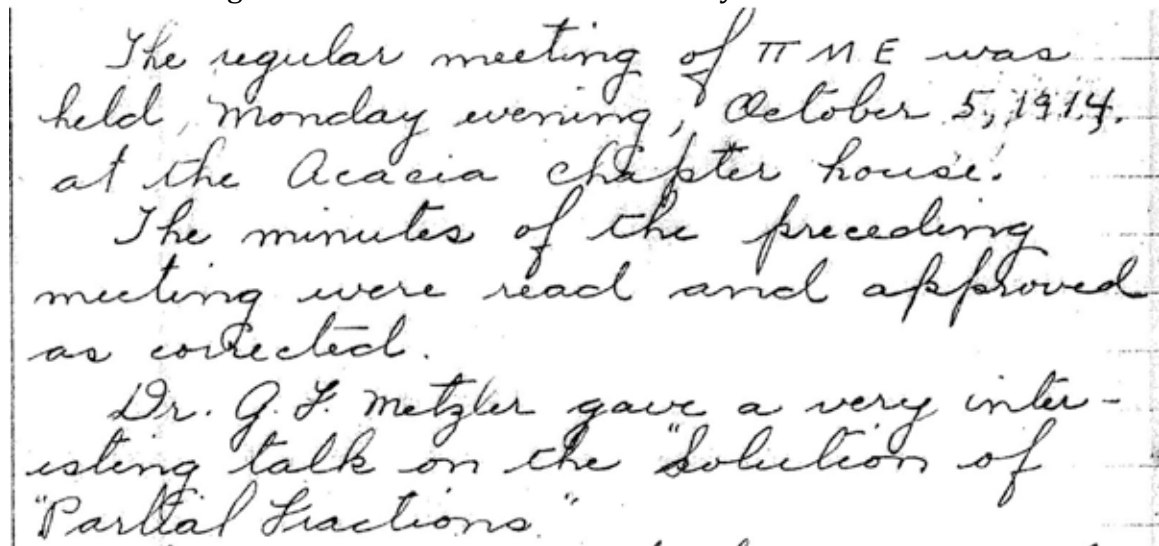 The regular meeting of ΠΜΕ was
held, Monday evening, October 5, 1914.
at the Acacia chapter house.
The minutes of the preceding
meeting were read and approved
as corrected.
Dr. G. F. Metzler gave a very inter-
esting talk on the "Solution of
"Partial Fractions."